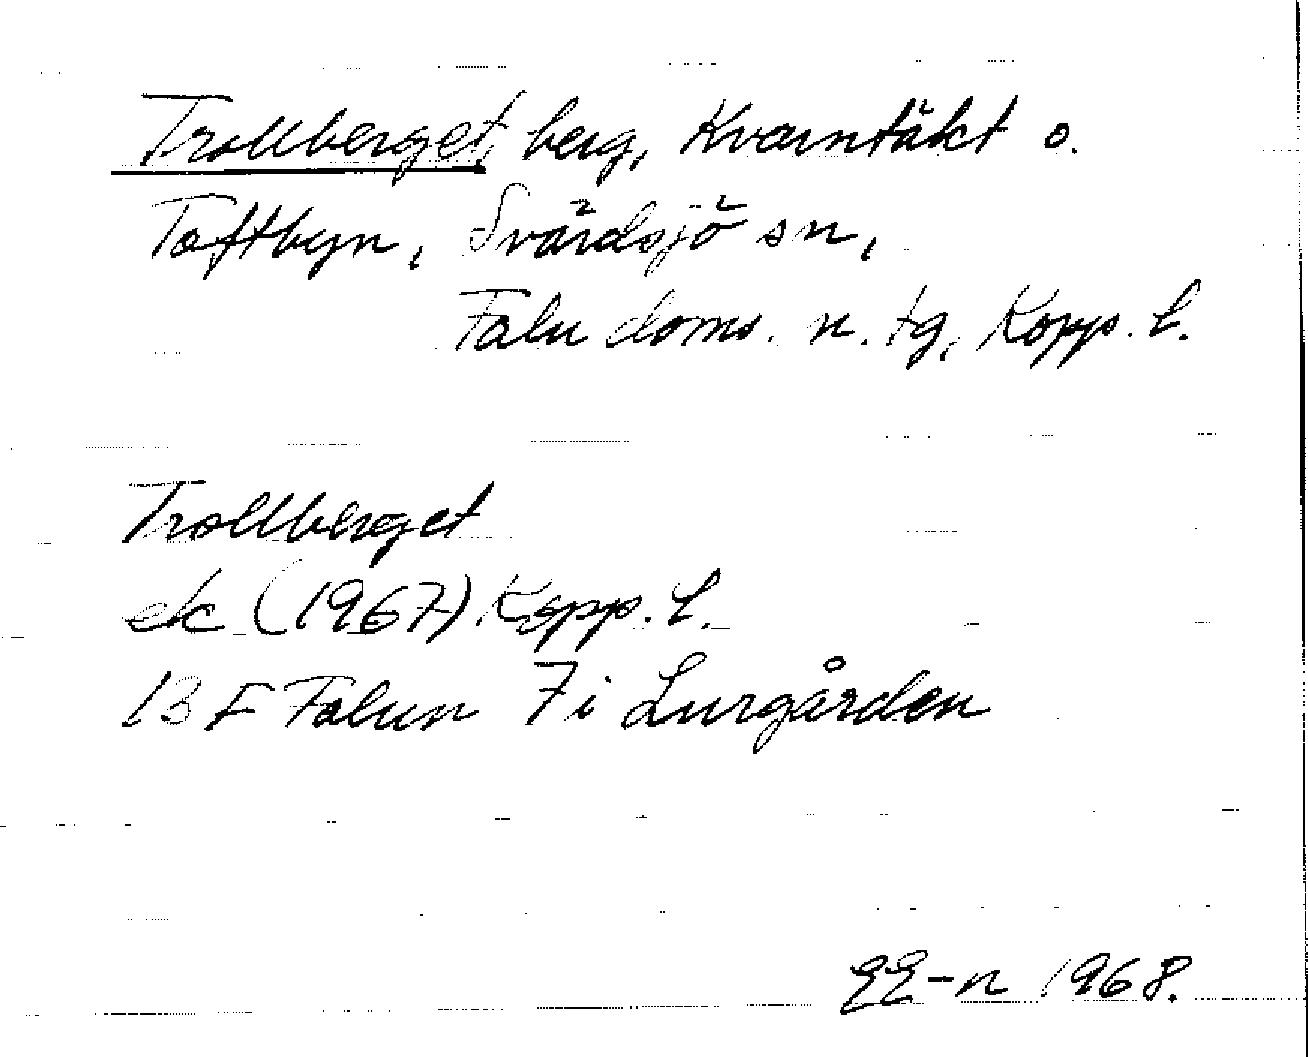 Trollberget, berg, Kvarntäkt o.
Toftbyn, Svärdsjö sn,
Falu doms. n. tg, Kopp. l.
Trollberget
ek (1967) Kopp. l.
13 F Falun 7 i Lurgården
EE-n 1968.